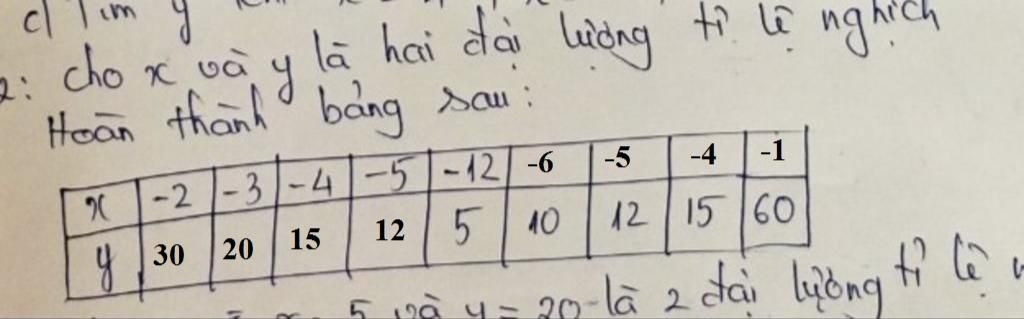 c) Tìm y
2: cho x và y là hai đại lượng tỉ lệ nghịch
Hoàn thành bảng sau:
x -2 -3 -4 -5 -12 -6 -5 -4 -1
y 30 20 15 12 5 10 12 15 60
5 và y = 20 là 2 đại lượng tỉ lệ